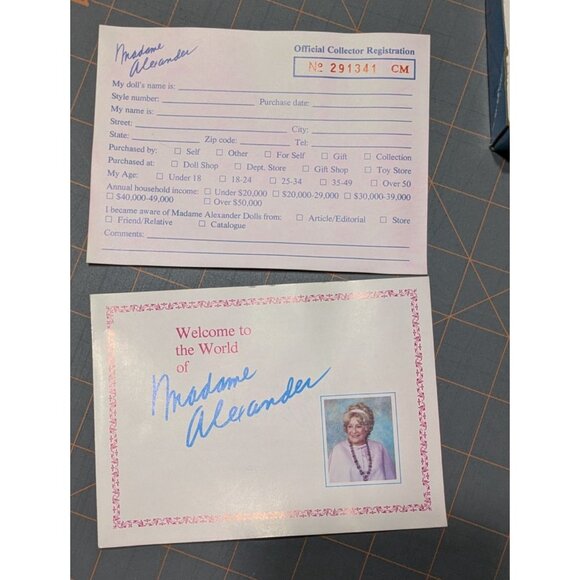 Madame
Alexander
Official Collector Registration
No 291341 CM
My doll's name is:
Style number: Purchase date:
My name is:
Street: City:
State: Zip code: Tel:
Purchased by: □ Self □ Other □ For Self □ Gift □ Collection
Purchased at: □ Doll Shop □ Dept. Store □ Gift Shop □ Toy Store
My Age: □ Under 18 □ 18-24 □ 25-34 □ 35-49 □ Over 50
Annual household income: □ Under $20,000 □ $20,000-29,000 □ $30,000-39,000
□ $40,000-49,000 □ Over $50,000
I became aware of Madame Alexander Dolls from: □ Article/Editorial □ Store
□ Friend/Relative □ Catalogue
Comments:
Welcome to
the World
of
Madame
Alexander